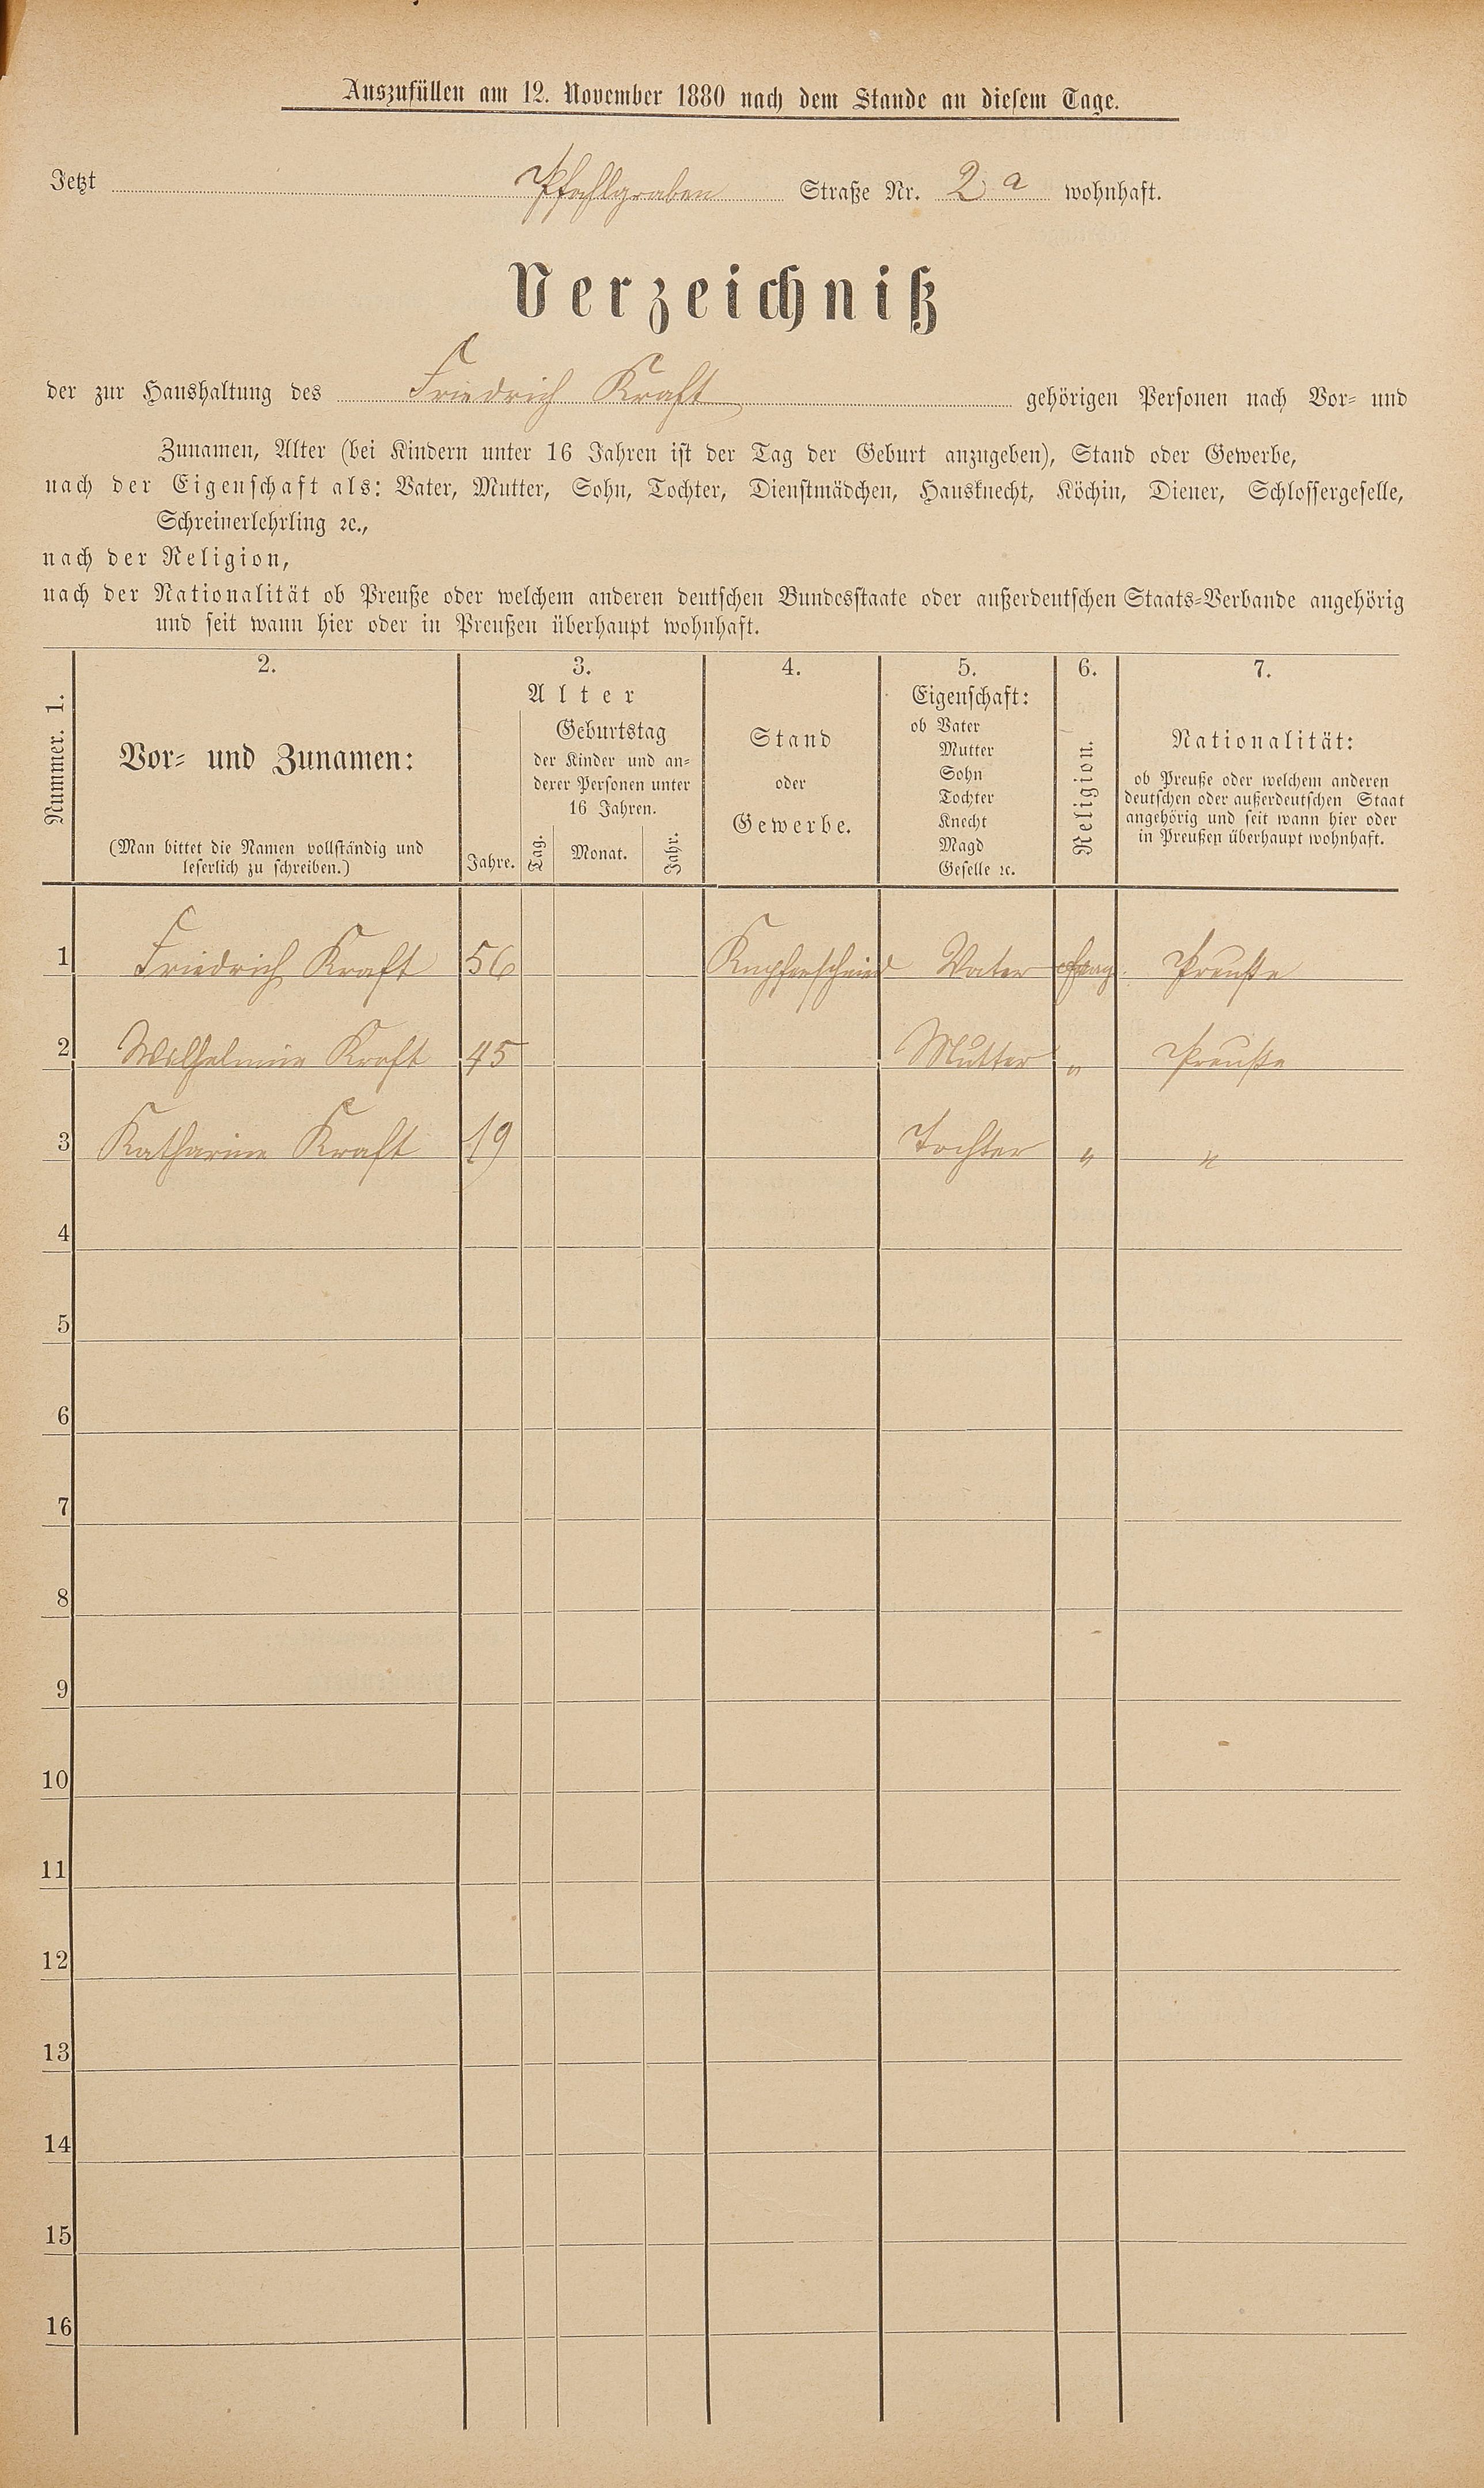 Auszufüllen am 12. November 1880 nach dem Stande an diesem Tage.
Jetzt Pfahlgraben Straße Nr. 2 a wohnhaft.
Verzeichniß
der zur Haushaltung des Friedrich Kraft gehörigen Personen nach Vor- und
Zunamen, Alter (bei Kindern unter 16 Jahren ist der Tag der Geburt anzugeben), Stand oder Gewerbe,
nach der Eigenschaft als: Vater, Mutter, Sohn, Tochter, Dienstmädchen, Hausknecht, Köchin, Diener, Schlossergeselle,
Schreinerlehrling ꝛc.,
nach der Religion,
nach der Nationalität ob Preuße oder welchem anderen deutschen Bundesstaate oder außerdeutschen Staats-Verbande angehörig
und seit wann hier oder in Preußen überhaupt wohnhaft.
Nummer. 1.
2.
Vor- und Zunamen:
(Man bittet die Namen vollständig und
leserlich zu schreiben.)
3.
Alter
Jahre.
Geburtstag
der Kinder und an-
derer Personen unter
16 Jahren.
Tag. Monat. Jahr.
4.
Stand
oder
Gewerbe.
5.
Eigenschaft:
ob Vater
Mutter
Sohn
Tochter
Knecht
Magd
Geselle ꝛc.
6.
Religion.
7.
Nationalität:
ob Preuße oder welchem anderen
deutschen oder außerdeutschen Staat
angehörig und seit wann hier oder
in Preußen überhaupt wohnhaft.
1 Friedrich Kraft 56 Kupferschmied Vater evang. Preuße
2 Wilhelmine Kraft 45 Mutter " Preuße
3 Katharine Kraft 19 Tochter " "
4
5
6
7
8
9
10
11
12
13
14
15
16